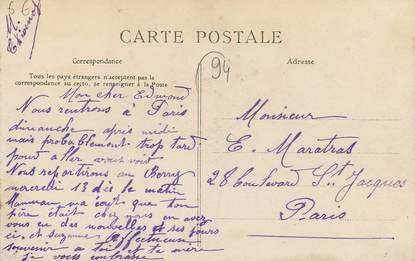 CARTE POSTALE
Correspondance
Adresse
Tous les pays étrangers n'acceptent pas la
correspondance au recto, se renseigner à la Poste
94
Mon cher Edmond
Nous rentrons à Paris
dimanche après midi
mais probablement trop tard
pour aller vous voir
Nous repartirons au Berry
mercredi 13 dès le matin
Maman m'a écrit que ton
père était chez nous en avez
vous eu des nouvelles et ses jours
ci, et Suzanne. Affectueux
souvenir à toi et ta mère
Je vous embrasse
Monsieur
E. Maratras
28 boulevard St. Jacques
Paris